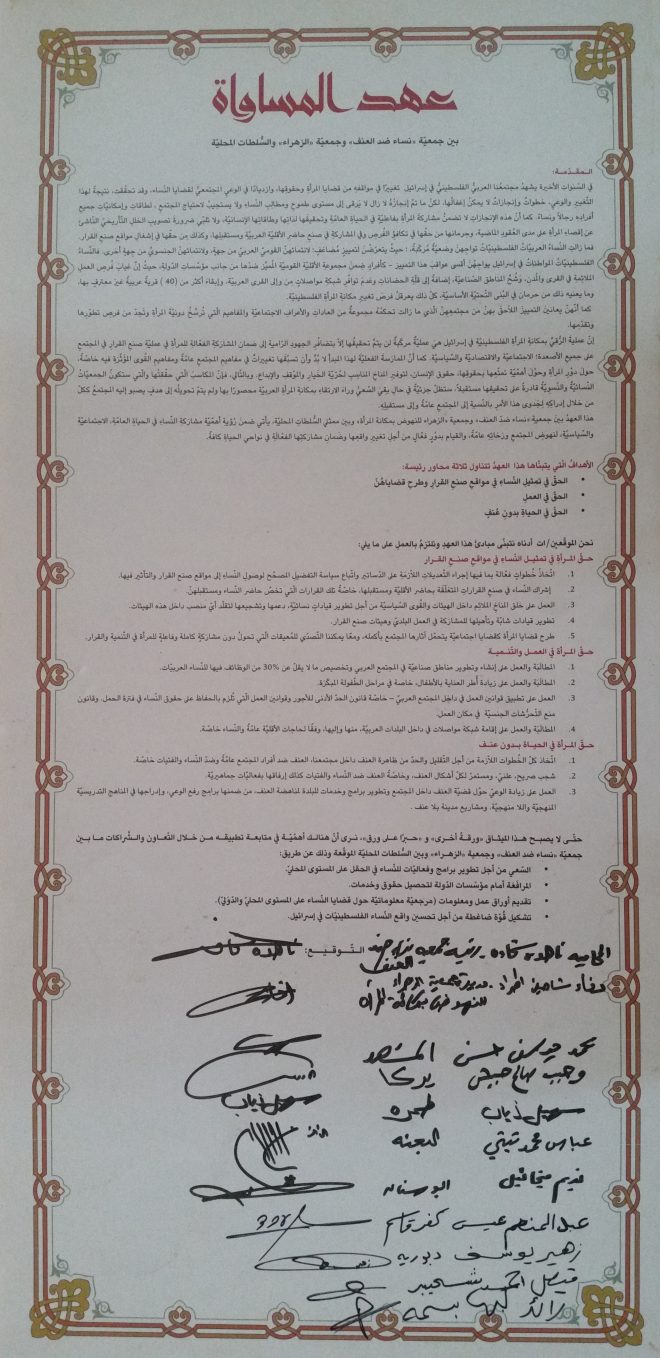 عهد المساواة
بين جمعيّة «نساء ضد العنف» وجمعيّة «الزهراء» والسُّلطات المحليّة
المقدّمة:
في السّنوات الأخيرة يشهدُ مجتمعُنا العربيُّ الفلسطينيُّ في إسرائيل تغييرًا في مواقفِهِ من قضايا المرأةِ وحقوقِها، وازديادًا في الوعي المجتمعيِّ لقضايا النّساء، وقد تحقّقت، نتيجةً لهذا
التّغيير والوعي، خطواتٌ وإنجازاتٌ لا يمكنُ إغفالُها، لكنّ ما تمّ إنجازُهُ لا زال لا يَرقى إلى مستوى طموح ومطالبِ النّساء ولا يستجيبُ لاحتياجِ المجتمع، لطاقات وإمكانيّات جميع
أفراده رجالًا ونساءً. كما أنّ هذه الإنجازات لا تضمنُ مشاركةَ المرأةِ بفاعليّة في الحياةِ العامّة وتحقيقَها لذاتِها وطاقاتِها الإنسانيّة، ولا تلبّي ضرورةَ تصويبِ الخللِ التّأريخيِّ النّاشئ
عن إقصاءِ المرأةِ على مدى العُقود الماضية، وحرمانِها من حقِّها في تكافُؤِ الفُرص وفي المشاركةِ في صنع حاضرِ الأقليّة العربيّة ومستقبلِها، وكذلك من حقّها في إشغالِ مواقعِ صنع القرار.
فما زالت النّساءُ العربيّات الفلسطينيّات تواجهنَ وضعيّةً مُركّبةً، حيثُ يتعرّضنَ لتمييزٍ مُضاعَف: لانتمائهنّ القوميّ العربيّ من جهة، ولانتمائهنّ الجنسويّ من جهةٍ أخرى. فالنّساءُ
الفلسطينيّاتُ المواطناتُ في إسرائيل يواجهْنَ أقسى عواقبِ هذا التمييز – كأفرادٍ ضمنَ مجموعةِ الأقليّة القوميّة المُميَّز ضدّها من جانب مؤسّسات الدّولة، حيثُ إنّ غيابَ فُرصِ العملِ
الملائمةِ في القرى والمُدن، وشُحَّ المناطق الصّناعيّة، إضافةً إلى قلّة الحضانات وعدمِ توافُرِ شبكةِ مواصلاتٍ من وإلى القرى العربيّة، وإبقاءَ أكثر من (40) قريةً عربيةً غير معترف بها،
وما يعنيه ذلك من حرمان في البُنى التّحتيّة الأساسيّة، كلُّ ذلك يعرقلُ فُرصَ تغييرِ مكانةِ المرأة الفلسطينيّة.
كما أنّهنّ يعانينَ التمييزَ اللّاحقَ بهنّ من مجتمعِهنّ الّذي ما زالت تحكمُهُ مجموعةٌ من العاداتِ والأعرافِ الاجتماعيّة والمفاهيم الّتي تُرسّخُ دونيّةَ المرأةِ وتَحدُّ من فرصِ تطوّرِها
وتقدّمها.
إنّ عمليةَ الرُّقيِّ بمكانةِ المرأةِ الفلسطينيّة في إسرائيل هي عمليّةٌ مركّبةٌ لن يتمّ تحقيقُها إلاّ بتضافُرِ الجهودِ الرّامية إلى ضمان المشاركةِ الفعّالةِ للمرأة في عمليّة صنعِ القرارِ في المجتمع
على جميع الأصعدة؛ الاجتماعيّة والاقتصاديّة والسّياسيّة. كما أنّ الممارسةَ الفعليّةَ لهذا المبدأ لا بُدّ وأن تسبقَها تغييراتٌ في مفاهيم المجتمعِ عامّةً ومفاهيمِ القوى المؤثّرةِ فيه خاصّةً،
حول دَوْرِ المرأة وحوْلَ أهميّةِ تمتُّعِها بحقوقِها، حقوقِ الإنسان، لتوفيرِ المناخِ المناسبِ لحُرّيّة الخَيارِ والموقفِ والإبداع. وبالتّالي، فإنّ المكاسبَ الّتي حقّقتْها والّتي ستكونُ الجمعيّاتُ
النّسائيّةُ والنّسويّةُ قادرةً على تحقيقِها مستقبلًا، ستظلُّ جزئيّةً في حال بقيَ السّعيُ وراءَ الارتقاءِ بمكانة المرأةِ العربيّة محصورًا بها ولم يتمَّ تحويلُهُ إلى هدفٍ يصبو إليه المجتمعُ ككلّ
من خلال إدراكِهِ لجَدوى هذا الأمرِ بالنسبة إلى المجتمع عامّةً وإلى مستقبلِهِ.
هذا العهدُ بين جمعيةِ «نساء ضدّ العنف»، وجمعيةِ «الزهراء للنهوض بمكانة المرأة»، وبين ممثلي السُّلطاتِ المحليّة، يأتي ضمنَ رُؤيةِ أهميّة مشاركةِ النّساء في الحياةِ العامّة، الاجتماعيّة
والسّياسيّة، لنهوضِ المجتمع ورَخائِهِ عامّةً، والقيام بدَوْرٍ فعّالٍ من أجل تغييرِ واقعِها وضمانِ مشاركتِها الفعّالة في نواحي الحياةِ كافّةً.
الأهدافُ الّتي يتبنّاها هذا العهدُ تتناول ثلاثة محاور رئيسة:
• الحقّ في تمثيل النّساءِ في مواقعِ صنعِ القرارِ وطرحِ قضاياهُنّ
• الحقّ في العمل
• الحقّ في الحياةِ بدونِ عُنفٍ
نحن الموقّعين/ات أدناه نتبنّى مبادئَ هذا العهدِ ونلتزمُ بالعملِ على ما يلي:
حقّ المرأة في تمثيل النّساء في مواقع صنع القرار
1. اتّخاذ خُطواتٍ فعّالة بما فيها إجراء التّعديلاتِ اللّازمةِ على الدّساتير واتّباع سياسة التفضيل المصحّح لوصول النّساء إلى مواقع صنع القرار والتأثير فيها.
2. إشراك النّساء في صنع القراراتِ المتعلّقة بحاضر الأقليّة ومستقبلِها، خاصّةً تلك القرارات الّتي تخصّ حاضر النّساء ومستقبلهنّ.
3. العمل على خلق المناخ الملائم داخل الهيئات والقُوى السّياسيّة من أجل تطوير قيادات نسائيّة، دعمها وتشجيعها لتقلّد أيّ منصب داخل هذه الهيئات.
4. تطوير قيادات شابّة وتأهيلها للمشاركة في العمل البلديّ وهيئات صنع القرار.
5. طرح قضايا المرأة كقضايا اجتماعيّة يتحمّل آثارها المجتمع بأكمله، ومعًا يمكننا التّصدّي للمُعيقات الّتي تحولُ دون مشاركةٍ كاملةٍ وفاعلةٍ للمرأة في التّنمية والقرار.
حقّ المرأة في العمل والتّنمية
1. المطالبَة والعمل على إنشاء وتطوير مناطق صناعيّة في المجتمع العربي وتخصيص ما لا يقلّ عن 30% من الوظائف فيها للنّساء العربيّات.
2. المطالبة والعمل على زيادة أُطر العناية بالأطفال، خاصة في مراحل الطّفولة المبكّرة.
3. العمل على تطبيق قوانين العمل في داخل المجتمع العربيّ – خاصّةً قانون الحدّ الأدنى للأجور وقوانين العمل الّتي تُلزم بالحفاظ على حقوق النّساء في فترة الحمل. وقانون
منع التّحرُّشات الجنسيّة في مكان العمل.
4. المطالبَة والعمل على إقامة شبكة مواصلات في داخل البلدات العربيّة، منها وإليها، وفقًا لحاجات الأقليّة عامّةً والنّساء خاصّة.
حقّ المرأة في الحياة بدون عنف
1. اتّخاذ كلّ الخُطوات اللّازمة من أجل التّقليل والحدّ من ظاهرة العنف داخل مجتمعنا، العنف ضد أفراد المجتمع عامّةً وضدّ النّساء والفتيات خاصّة.
2. شجب صريح، علنيّ، ومستمرّ لكلّ أشكال العنف، وخاصّةً العنف ضد النّساء والفتيات كذلك إرفاقها بفعاليّات جماهيريّة.
3. العمل على زيادة الوعيّ حوْل قضيّة العنف داخل المجتمع وتطوير برامج وخدمات للبلدة لمناهضة العنف، من ضمنها برامج رفع الوعي، وإدراجها في المناهج التدريسيّة
المنهجيّة واللا منهجيّة. ومشاريع مدينة بلا عنف.
حتّى لا يصبح هذا الميثاق «ورقةً أخرى» و «حبرًا على ورق»، نرى أنّ هنالك أهمّيّة في متابعة تطبيقه من خلال التّعاون والشّراكات ما بين
جمعيّة «نساء ضد العنف» وجمعية «الزهراء» وبين السُّلطات المحليّة الموقّعة وذلك عن طريق:
• السّعي من أجل تطوير برامج وفعاليّات للنّساء في الحقل على المستوى المحليّ.
• المرافعة أمام مؤسّسات الدّولة لتحصيل حقوق وخدمات.
• تقديم أوراق عمل ومعلومات (مرجعيّة معلوماتيّة حول قضايا النّساء على المستوى المحليّ والدّوَليّ).
• تشكيل قُوّة ضاغطة من أجل تحسين واقع النّساء الفلسطينيّات في إسرائيل.
التّوقيع: المحاميه ناهدة شحادة - رئيسة جمعية نساء ضد
العنف
وفاء شاهين - مديرة جمعية الزهراء
للنهوض بمكانة المرأة
محمد حسن المشهد
وهيب حبيش يركا
سهيل ذياب طمرة سهيل ذياب
عباس محمد تيتي البعنه
نديم ميخائيل
عبد المنعم عيسى كفر قاسم
زهير يوسف دبورية
شعب
رائد بسمه